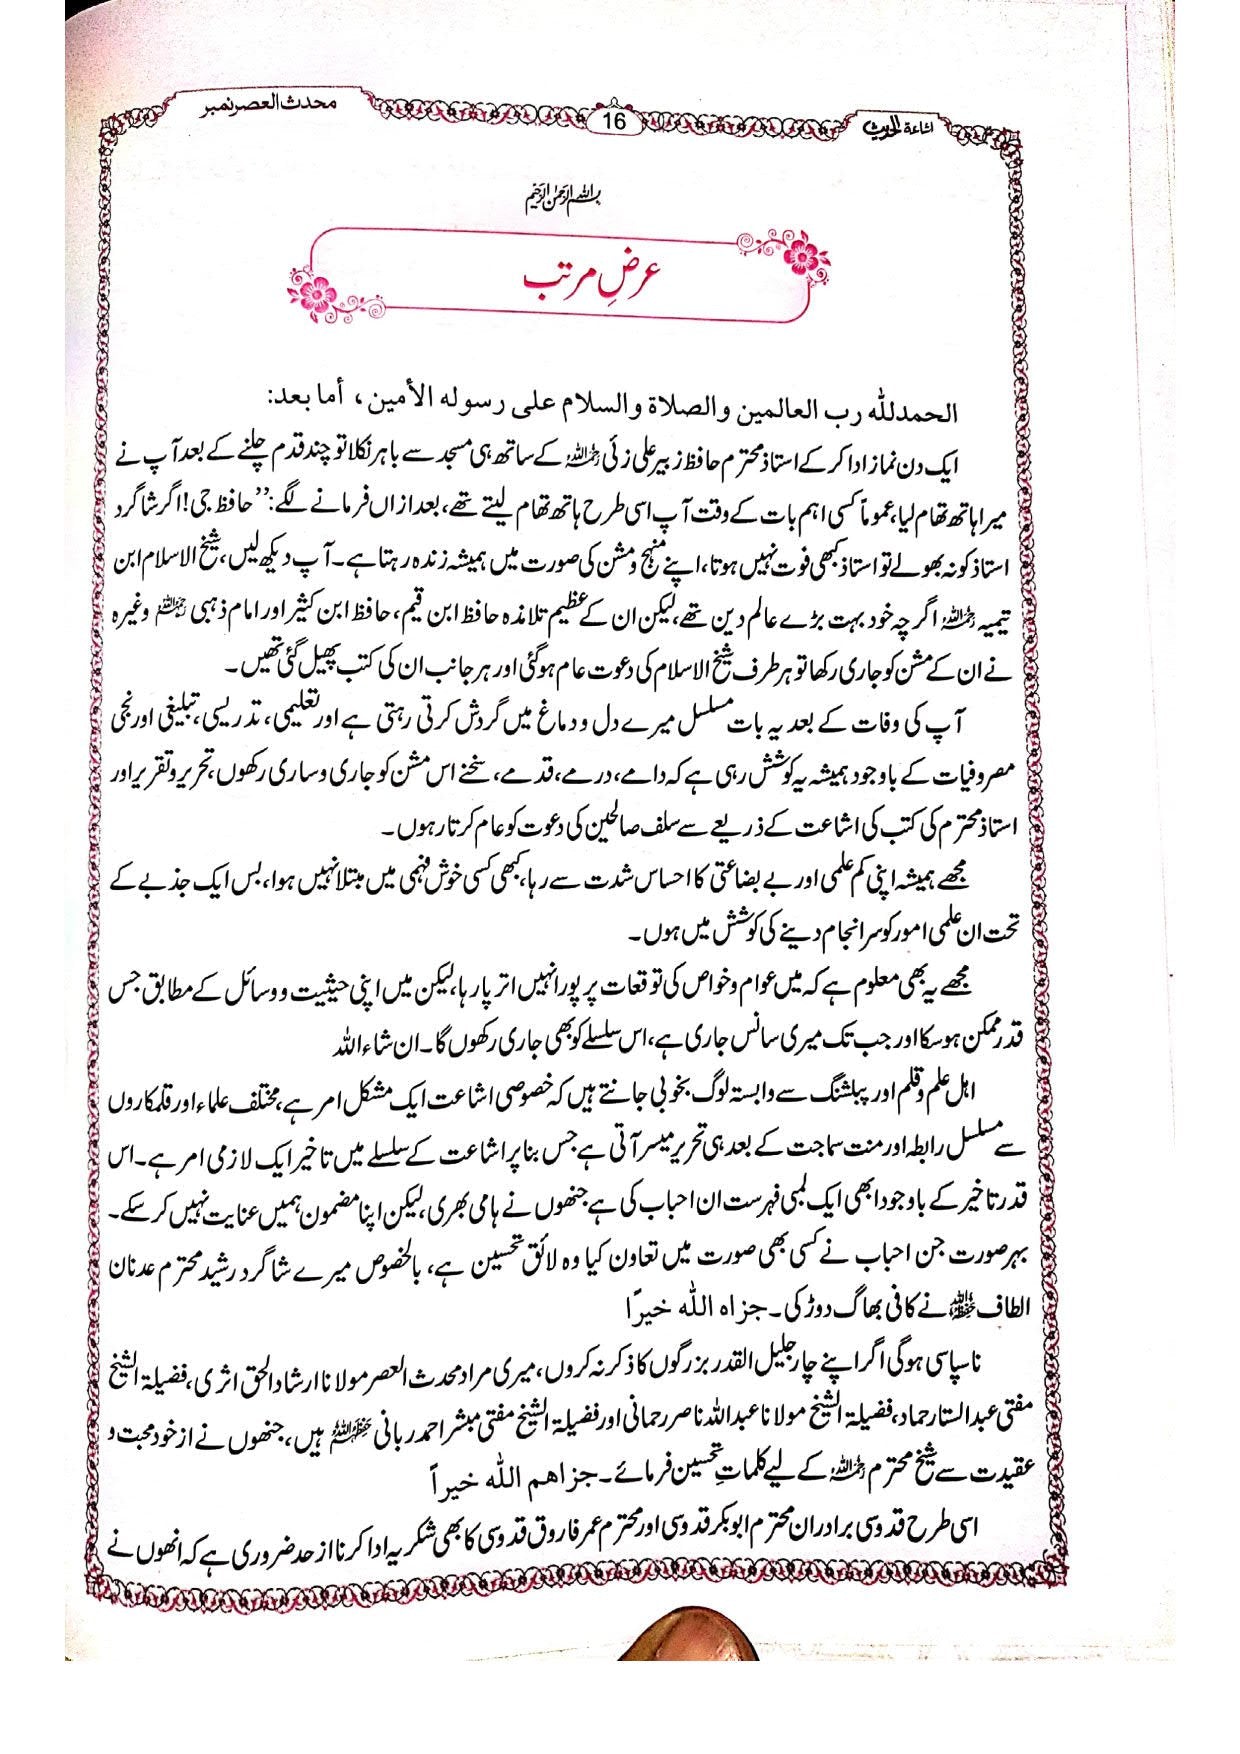 اشاعۃ الحدیث
16
محدث العصر نمبر
بسم اللہ الرحمن الرحیم
عرضِ مرتب
الحمدلله رب العالمين والصلاة والسلام على رسوله الأمين ، أما بعد:
ایک دن نماز ادا کر کے استاذ محترم حافظ زبیر علی زئی رحمہ اللہ کے ساتھ ہی مسجد سے باہر نکلا تو چند قدم چلنے کے بعد آپ نے
میرا ہاتھ تھام لیا، عموماً کسی اہم بات کے وقت آپ اسی طرح ہاتھ تھام لیتے تھے، بعد ازاں فرمانے لگے: ’’حافظ جی! اگر شاگرد
استاذ کو نہ بھولے تو استاذ کبھی فوت نہیں ہوتا، اپنے منہج و مشن کی صورت میں ہمیشہ زندہ رہتا ہے۔ آپ دیکھ لیں، شیخ الاسلام ابن
تیمیہ رحمہ اللہ اگرچہ خود بہت بڑے عالم دین تھے، لیکن ان کے عظیم تلامذہ حافظ ابن قیم، حافظ ابن کثیر اور امام ذہبی رحمہم اللہ وغیرہ
نے ان کے مشن کو جاری رکھا تو ہر طرف شیخ الاسلام کی دعوت عام ہو گئی اور ہر جانب ان کی کتب پھیل گئی تھیں۔
آپ کی وفات کے بعد یہ بات مسلسل میرے دل و دماغ میں گردش کرتی رہتی ہے اور تعلیمی، تدریسی، تبلیغی اور نجی
مصروفیات کے باوجود ہمیشہ یہ کوشش رہی ہے کہ دامے، درمے، قدمے، سخنے اس مشن کو جاری و ساری رکھوں، تحریر و تقریر اور
استاذ محترم کی کتب کی اشاعت کے ذریعے سے سلف صالحین کی دعوت کو عام کرتا رہوں۔
مجھے ہمیشہ اپنی کم علمی اور بے بضاعتی کا احساس شدت سے رہا، کبھی کسی خوش فہمی میں مبتلا نہیں ہوا، بس ایک جذبے کے
تحت ان علمی امور کو سرانجام دینے کی کوشش میں ہوں۔
مجھے یہ بھی معلوم ہے کہ میں عوام و خواص کی توقعات پر پورا نہیں اتر پا رہا، لیکن میں اپنی حیثیت و وسائل کے مطابق جس
قدر ممکن ہو سکا اور جب تک میری سانس جاری ہے، اس سلسلے کو بھی جاری رکھوں گا۔ ان شاء اللہ
اہل علم و قلم اور پبلشنگ سے وابستہ لوگ بخوبی جانتے ہیں کہ خصوصی اشاعت ایک مشکل امر ہے، مختلف علماء اور قلمکاروں
سے مسلسل رابطہ اور منت سماجت کے بعد ہی تحریر میسر آتی ہے جس بنا پر اشاعت کے سلسلے میں تاخیر ایک لازمی امر ہے۔ اس
قدر تاخیر کے باوجود ابھی ایک لمبی فہرست ان احباب کی ہے جنھوں نے ہامی بھری، لیکن اپنا مضمون ہمیں عنایت نہیں کر سکے۔
بہر صورت جن احباب نے کسی بھی صورت میں تعاون کیا وہ لائق تحسین ہے، بالخصوص میرے شاگرد رشید محترم عدنان
الطاف حفظہ اللہ نے کافی بھاگ دوڑ کی۔ جزاه الله خيرًا
ناسپاسی ہوگی اگر اپنے چار جلیل القدر بزرگوں کا ذکر نہ کروں، میری مراد محدث العصر مولانا ارشاد الحق اثری، فضیلۃ الشیخ
مفتی عبدالستار حماد، فضیلۃ الشیخ مولانا عبداللہ ناصر رحمانی اور فضیلۃ الشیخ مفتی مبشر احمد ربانی حفظہم اللہ ہیں، جنھوں نے از خود محبت و
عقیدت سے شیخ محترم رحمہ اللہ کے لیے کلماتِ تحسین فرمائے۔ جزاهم الله خيراً
اسی طرح قدوسی برادران محترم ابوبکر قدوسی اور محترم عمر فاروق قدوسی کا بھی شکریہ ادا کرنا از حد ضروری ہے کہ انھوں نے